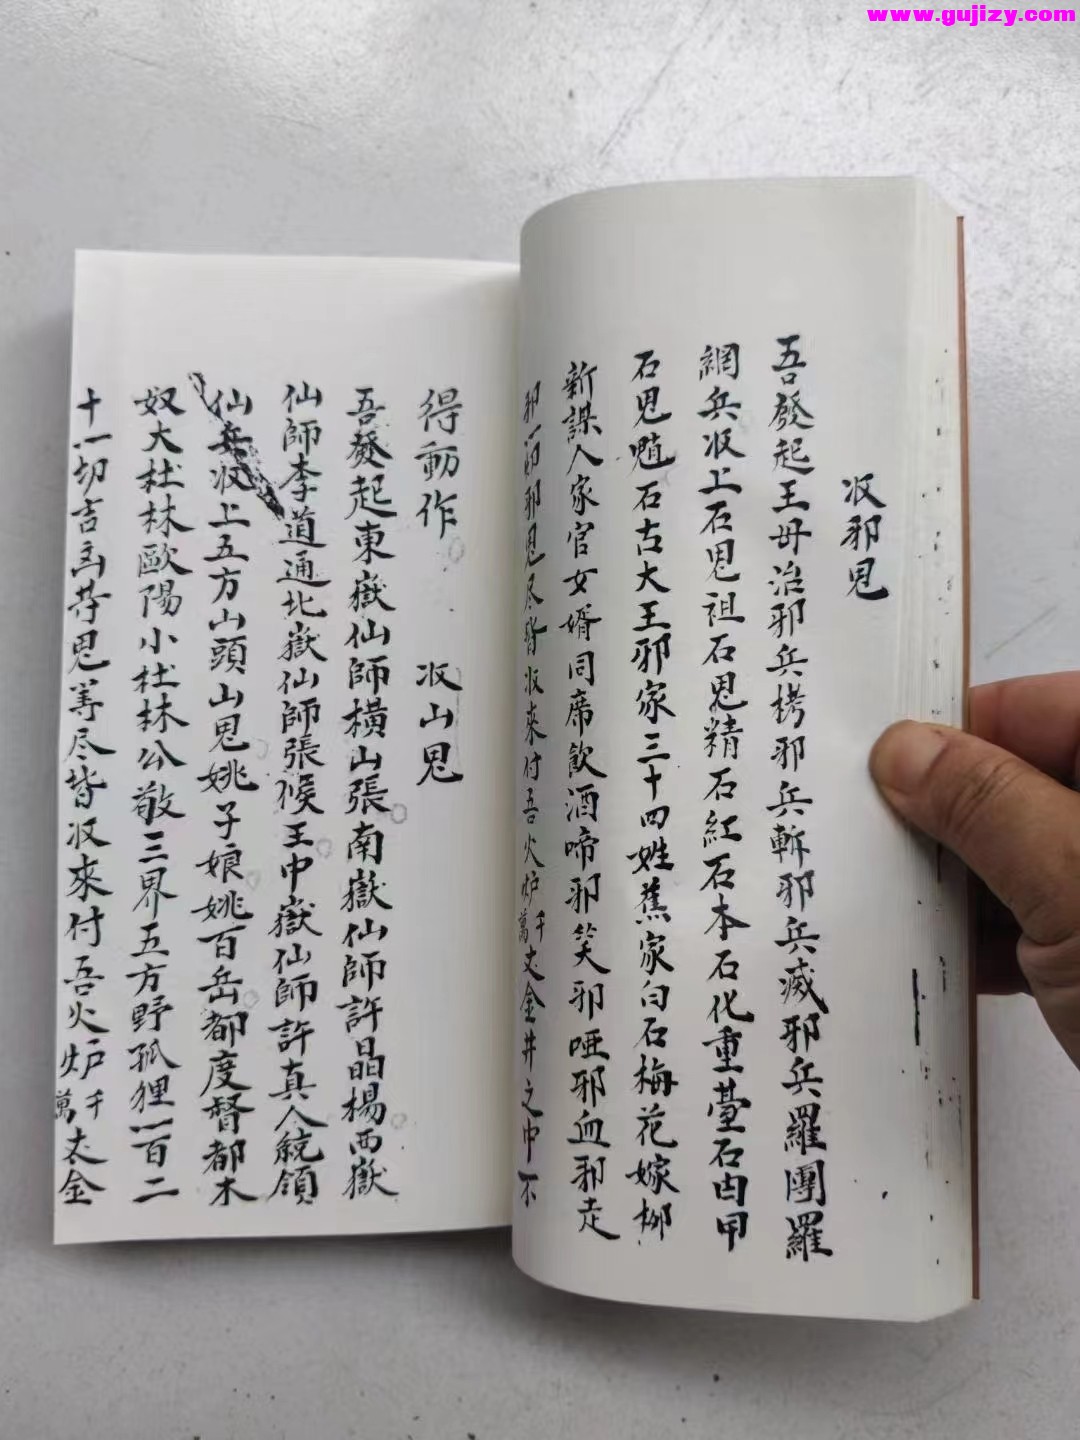 www.gujizy.com
収邪鬼
吾發起王母治邪兵拷邪兵斬邪兵滅邪兵羅團羅
網兵収上石鬼祖石鬼精石紅石本石化重臺石由甲
石鬼魁石古大王邪家三十四姓蕉家白石梅花嫁柳
新謀人家官女婿同席飲酒啼邪笑邪哑邪血邪走
邪一切邪鬼尽皆収來付吾火炉千萬丈金井之中不
得動作 収山鬼
吾發起東嶽仙師橫山張南嶽仙師許晶楊西嶽
仙師李道通北嶽仙師張候王中嶽仙師許真人統領
仙兵収上五方山頭山鬼姚子娘姚百岳都度督都木
奴大杜林歐陽小杜林公敬三界五方野孤狸一百二
十一切吉鬼等尽皆収來付吾火炉千萬丈金